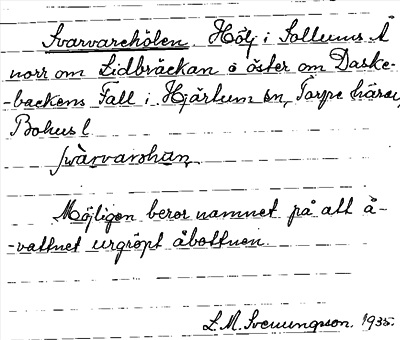 Svarvarehölen Hölj i Sollums Å
norr om Lidbräckan o öster om Daske-
-backens Fall i Hjärtum sn, Torpe härad,
Bohus l
Möjligen beror namnet på att å-
-vattnet urgröpt åbottnen.
L. M. Svenungson. 1935.